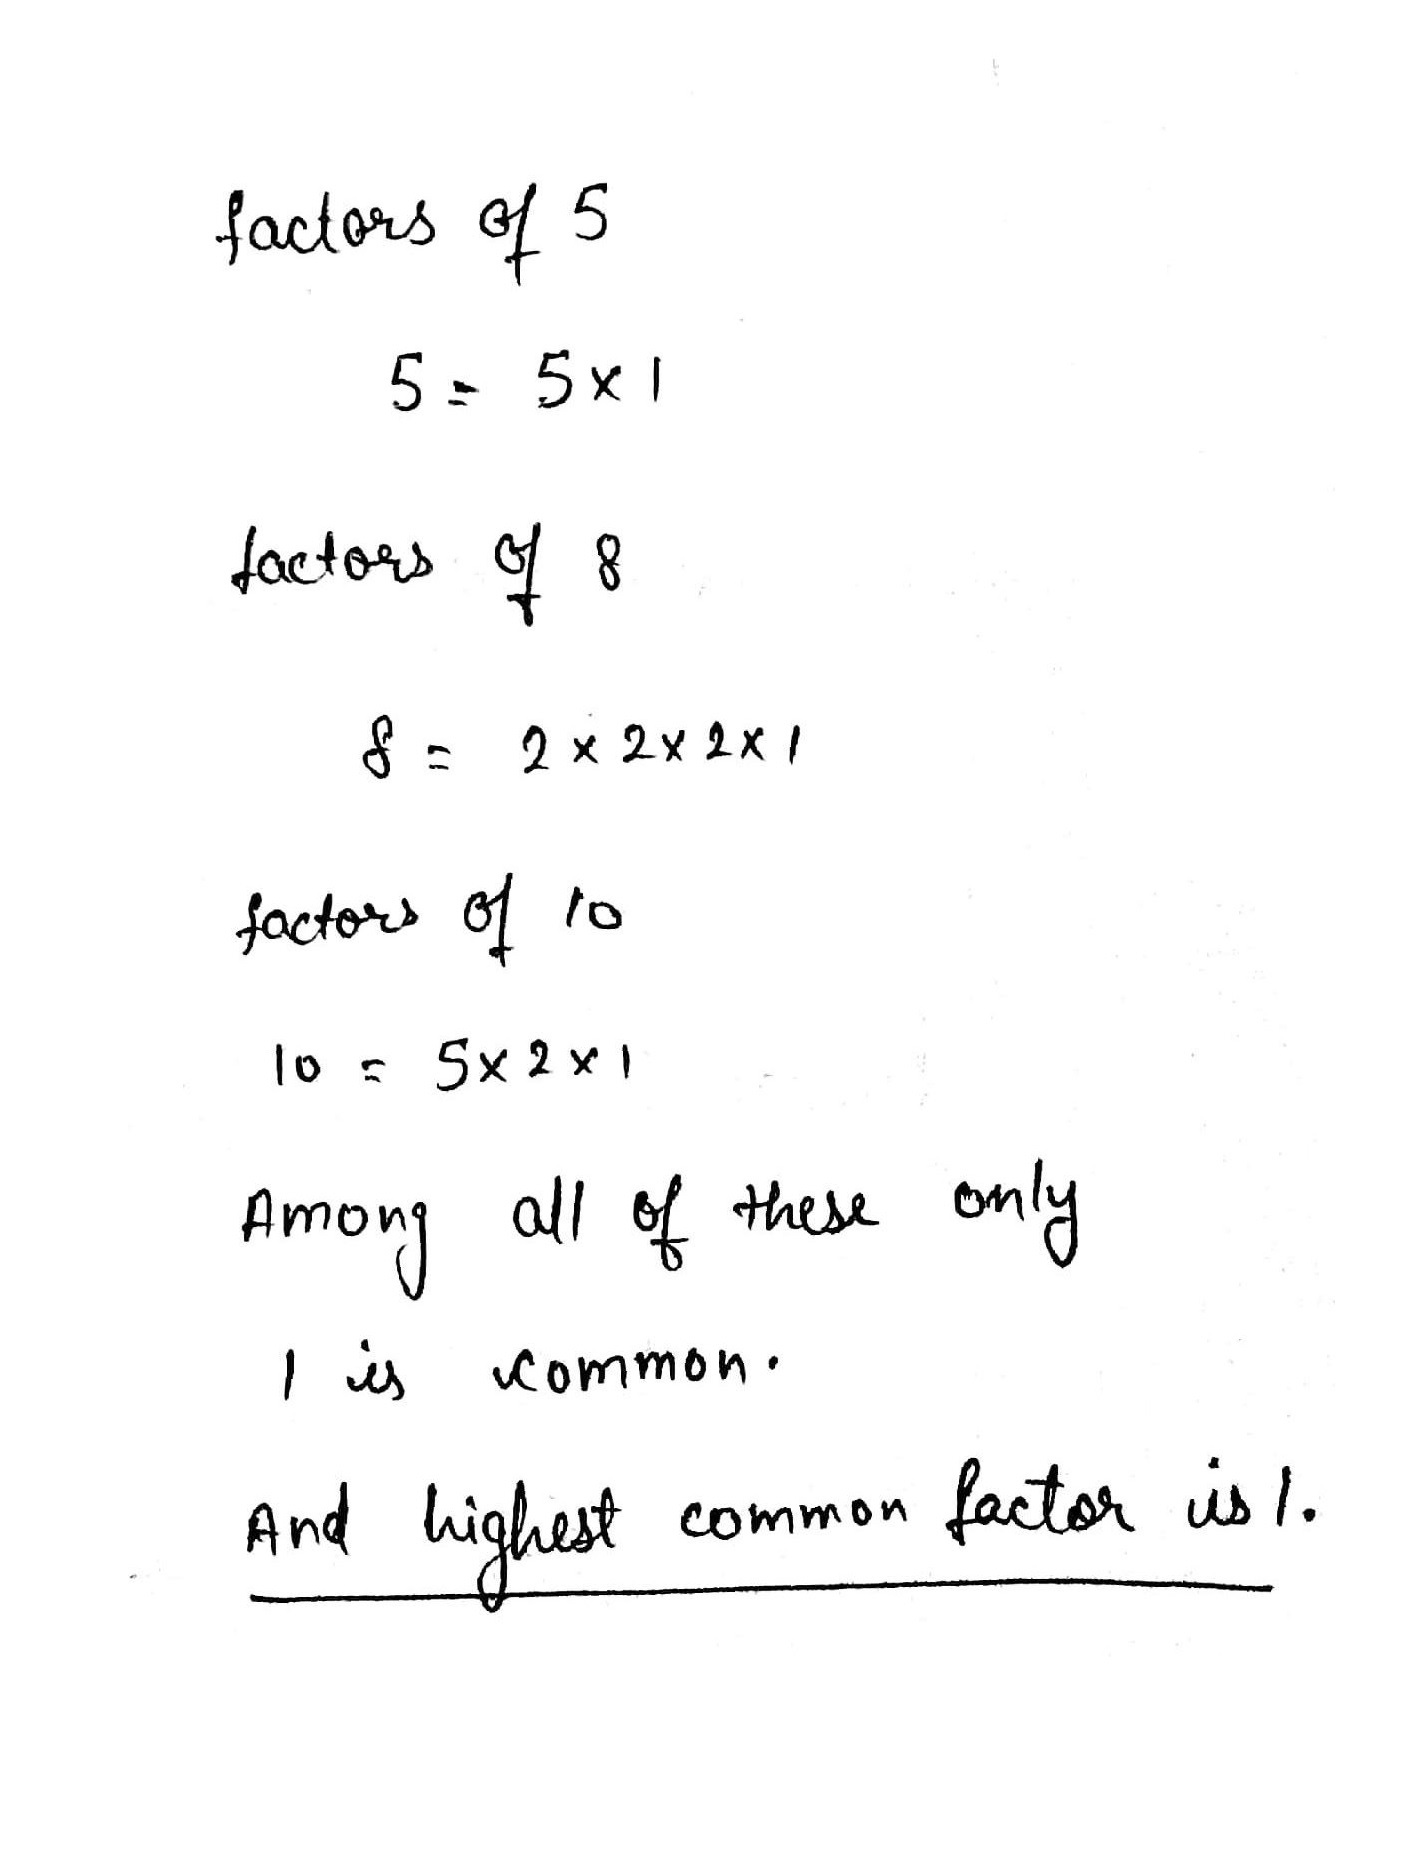 factors of 5
5 = 5 x 1
factors of 8
8 = 2 x 2 x 2 x 1
factors of 10
10 = 5 x 2 x 1
Among all of these only
1 is common.
And highest common factor is 1.